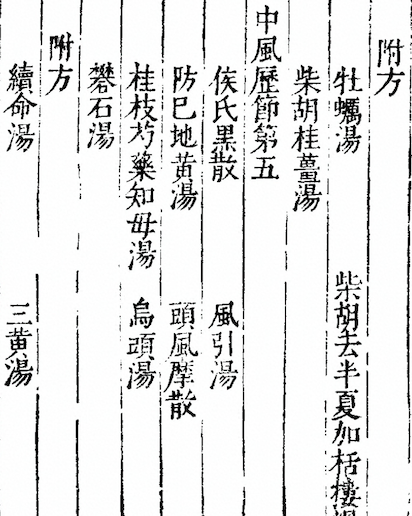 附方
牡蠣湯　柴胡去半夏加栝樓
柴胡桂薑湯
中風歷節第五
侯氏黑散　風引湯
防巳地黃湯　頭風摩散
桂枝芍藥知母湯　烏頭湯
礬石湯
附方
續命湯　三黃湯